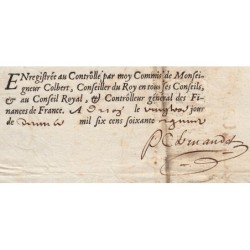 ENregistrée au Contrôlle par moy Commis de Monsei-
gneur Colbert, Conseiller du Roy en tous ses Conseils,
& au Conseil Royal, & Contrôlleur général des Fi-
nances de France. A le jour
de mil six cens soixante